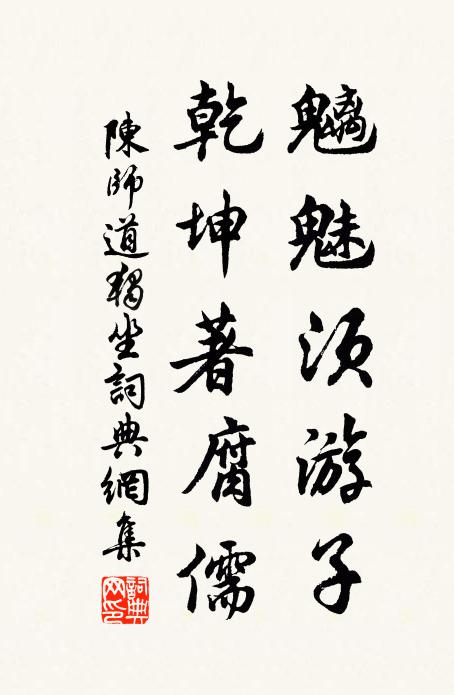 魑魅須游子
乾坤著腐儒
陳師道獨坐詞典網集
詞典网印